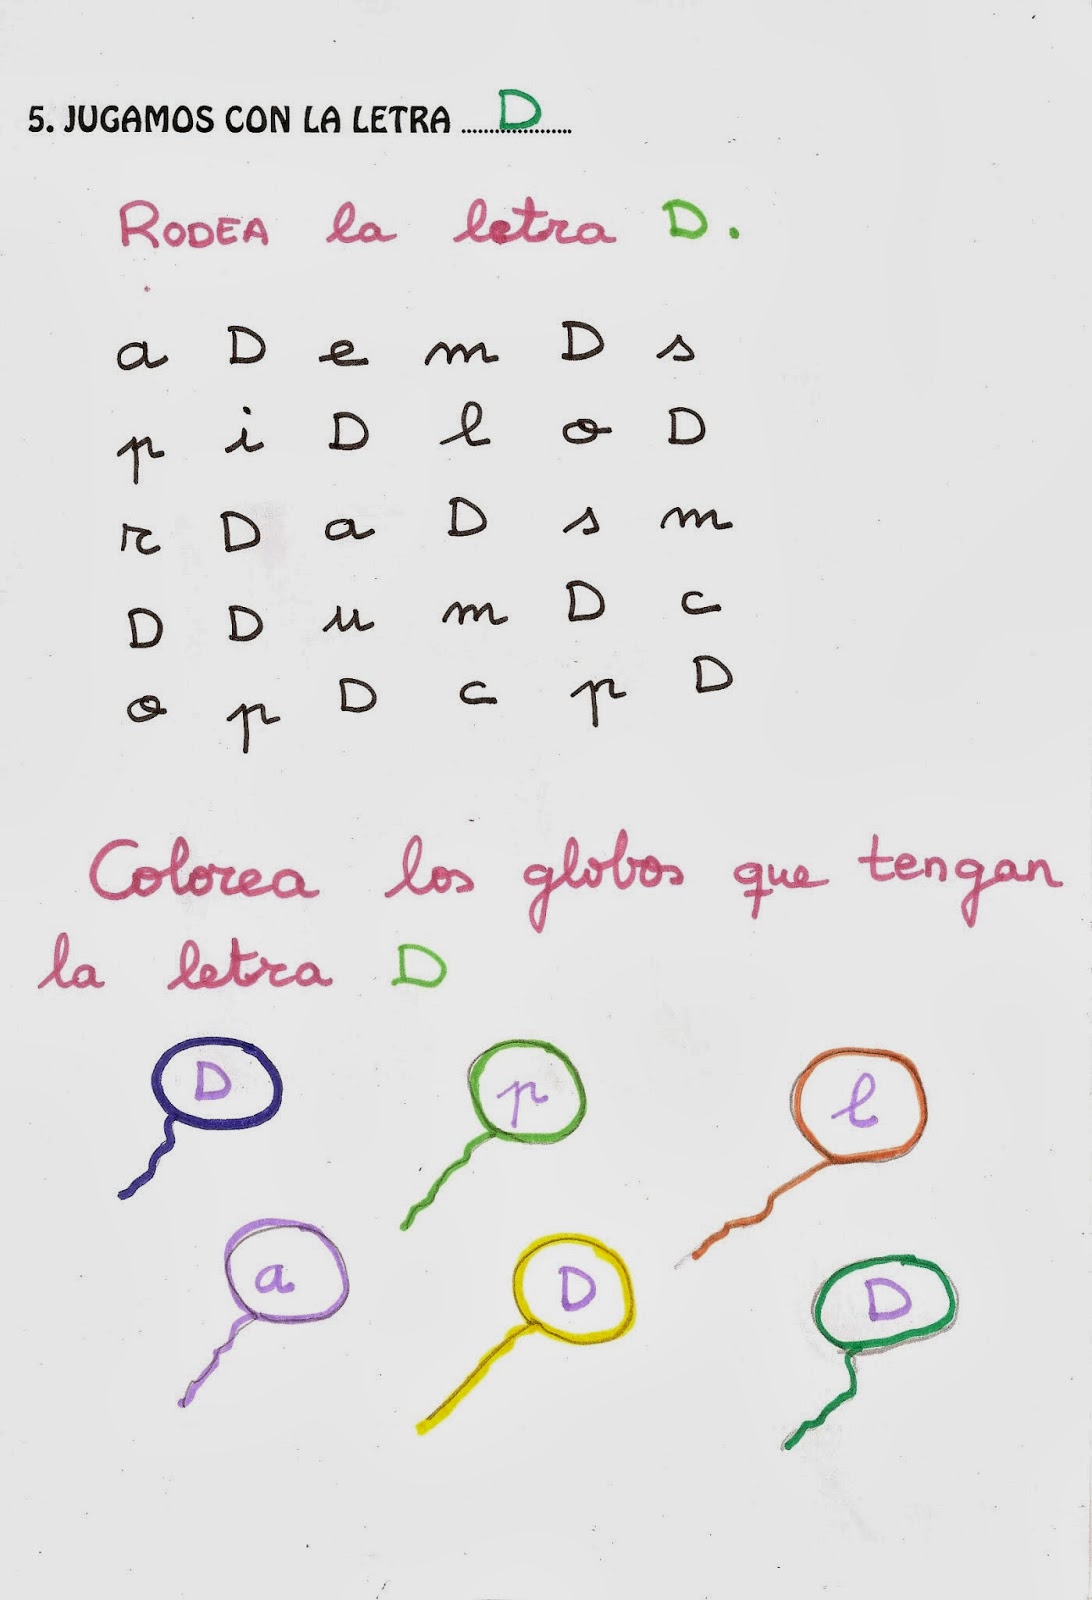 5. JUGAMOS CON LA LETRA ......D......
RODEA la letra D.
a D e m D s
p i D l o D
r D a D s m
D D u m D c
o p D c p D
Colorea los globos que tengan
la letra D
D p l
a D D